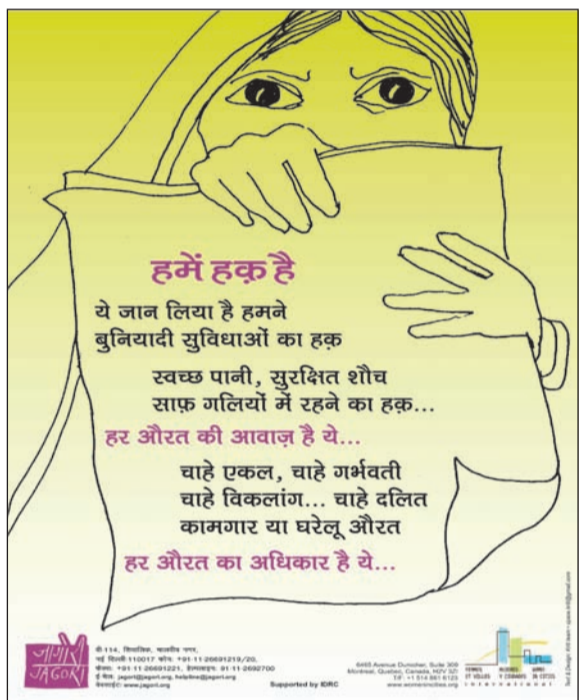 हमें हक़ है
ये जान लिया है हमने
बुनियादी सुविधाओं का हक़
स्वच्छ पानी, सुरक्षित शौच
साफ़ गलियों में रहने का हक़...
हर औरत की आवाज़ है ये...
चाहे एकल, चाहे गर्भवती
चाहे विकलांग... चाहे दलित
कामगार या घरेलू औरत
हर औरत का अधिकार है ये...
जागोरी
JAGORI
बी-114, शिवालिक, मालवीय नगर,
नई दिल्ली-110017 फोन: +91-11-26691219/20,
फैक्स: +91-11-26691221, हेल्पलाइन: 91-11-2692700
ई मेल: jagori@jagori.org, helpline@jagori.org
वेबसाईट: www.jagori.org
Supported by IDRC
6465 Avenue Durocher, Suite 309
Montreal, Quebec, Canada, H2V 3Z1
T/F: +1 514 861 6123
www.womenincities.org
FEMMES MUJERES WOMEN
ET VILLES Y CIUDADES IN CITIES
international